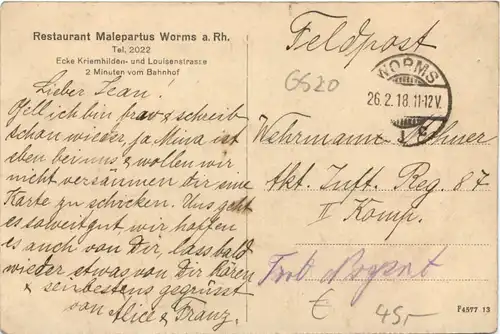 Restaurant Malepartus Worms a. Rh.
Tel. 2022
Ecke Kriemhilden- und Louisenstrasse
2 Minuten vom Bahnhof
Lieber Jean!
Gell ich bin brav & schreib
schon wieder, ja Mina ist
eben bei uns & wollen wir
nicht versäumen Dir eine
Karte zu schicken. Uns geht
es soweit gut, wir hoffen
es auch von Dir, lass bald
wieder etwas von Dir hören
& sei bestens gegrüsst
von
Alice & Franz.
Feldpost
GS20
WORMS
26.2.18.11-12V.
1 c
Wehrmann
Akt. Inft. Reg. 87
II Komp.
€ 45,-
F4577 13